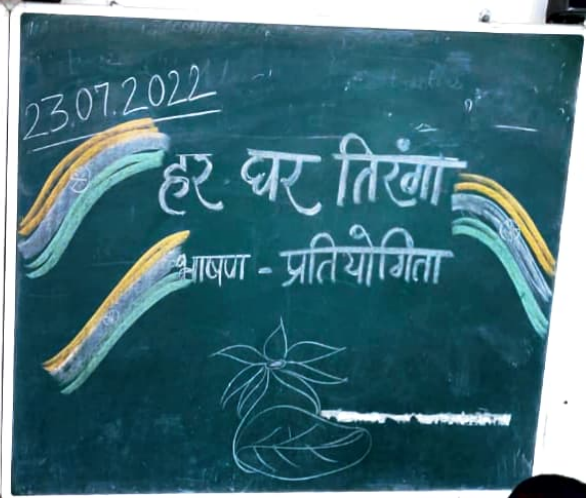 23.07.2022
हर घर तिरंगा
भाषण - प्रतियोगिता